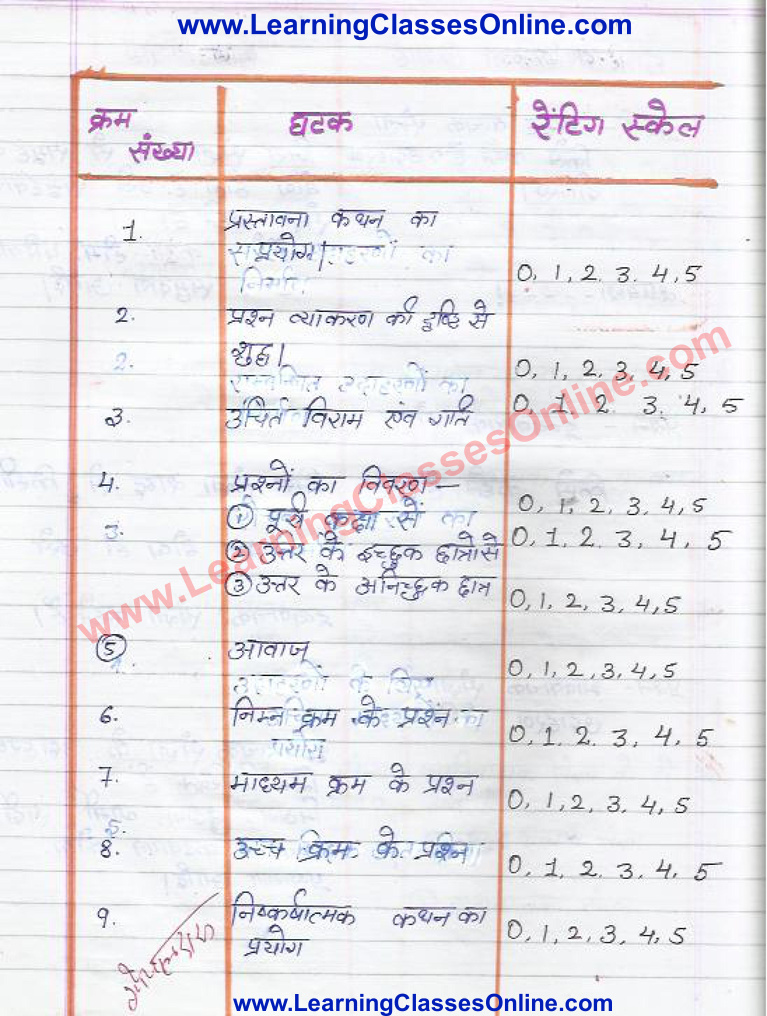 www.LearningClassesOnline.com
क्रम संख्या घटक रेंटिंग स्केल
1. प्रस्तावना कथन का
सप्रयोग।
0, 1, 2, 3, 4, 5
2. प्रश्न व्याकरण की दृष्टि से
शुद्ध।
0, 1, 2, 3, 4, 5
3. उचित विराम एंव गति 0, 1, 2, 3, 4, 5
4. प्रश्नों का विवरण —
0, 1, 2, 3, 4, 5
① पूर्व कक्षा से
② उत्तर के इच्छुक छात्रो से 0, 1, 2, 3, 4, 5
③ उत्तर के अनिच्छुक छात्र
0, 1, 2, 3, 4, 5
⑤ आवाज़
0, 1, 2, 3, 4, 5
6. निम्न क्रम के प्रश्न का
प्रयोग
0, 1, 2, 3, 4, 5
7. माध्यम क्रम के प्रश्न
0, 1, 2, 3, 4, 5
8. उच्च क्रम के प्रश्न
0, 1, 2, 3, 4, 5
9. निष्कर्षात्मक कथन का
प्रयोग
0, 1, 2, 3, 4, 5
www.LearningClassesOnline.com
www.LearningClassesOnline.com